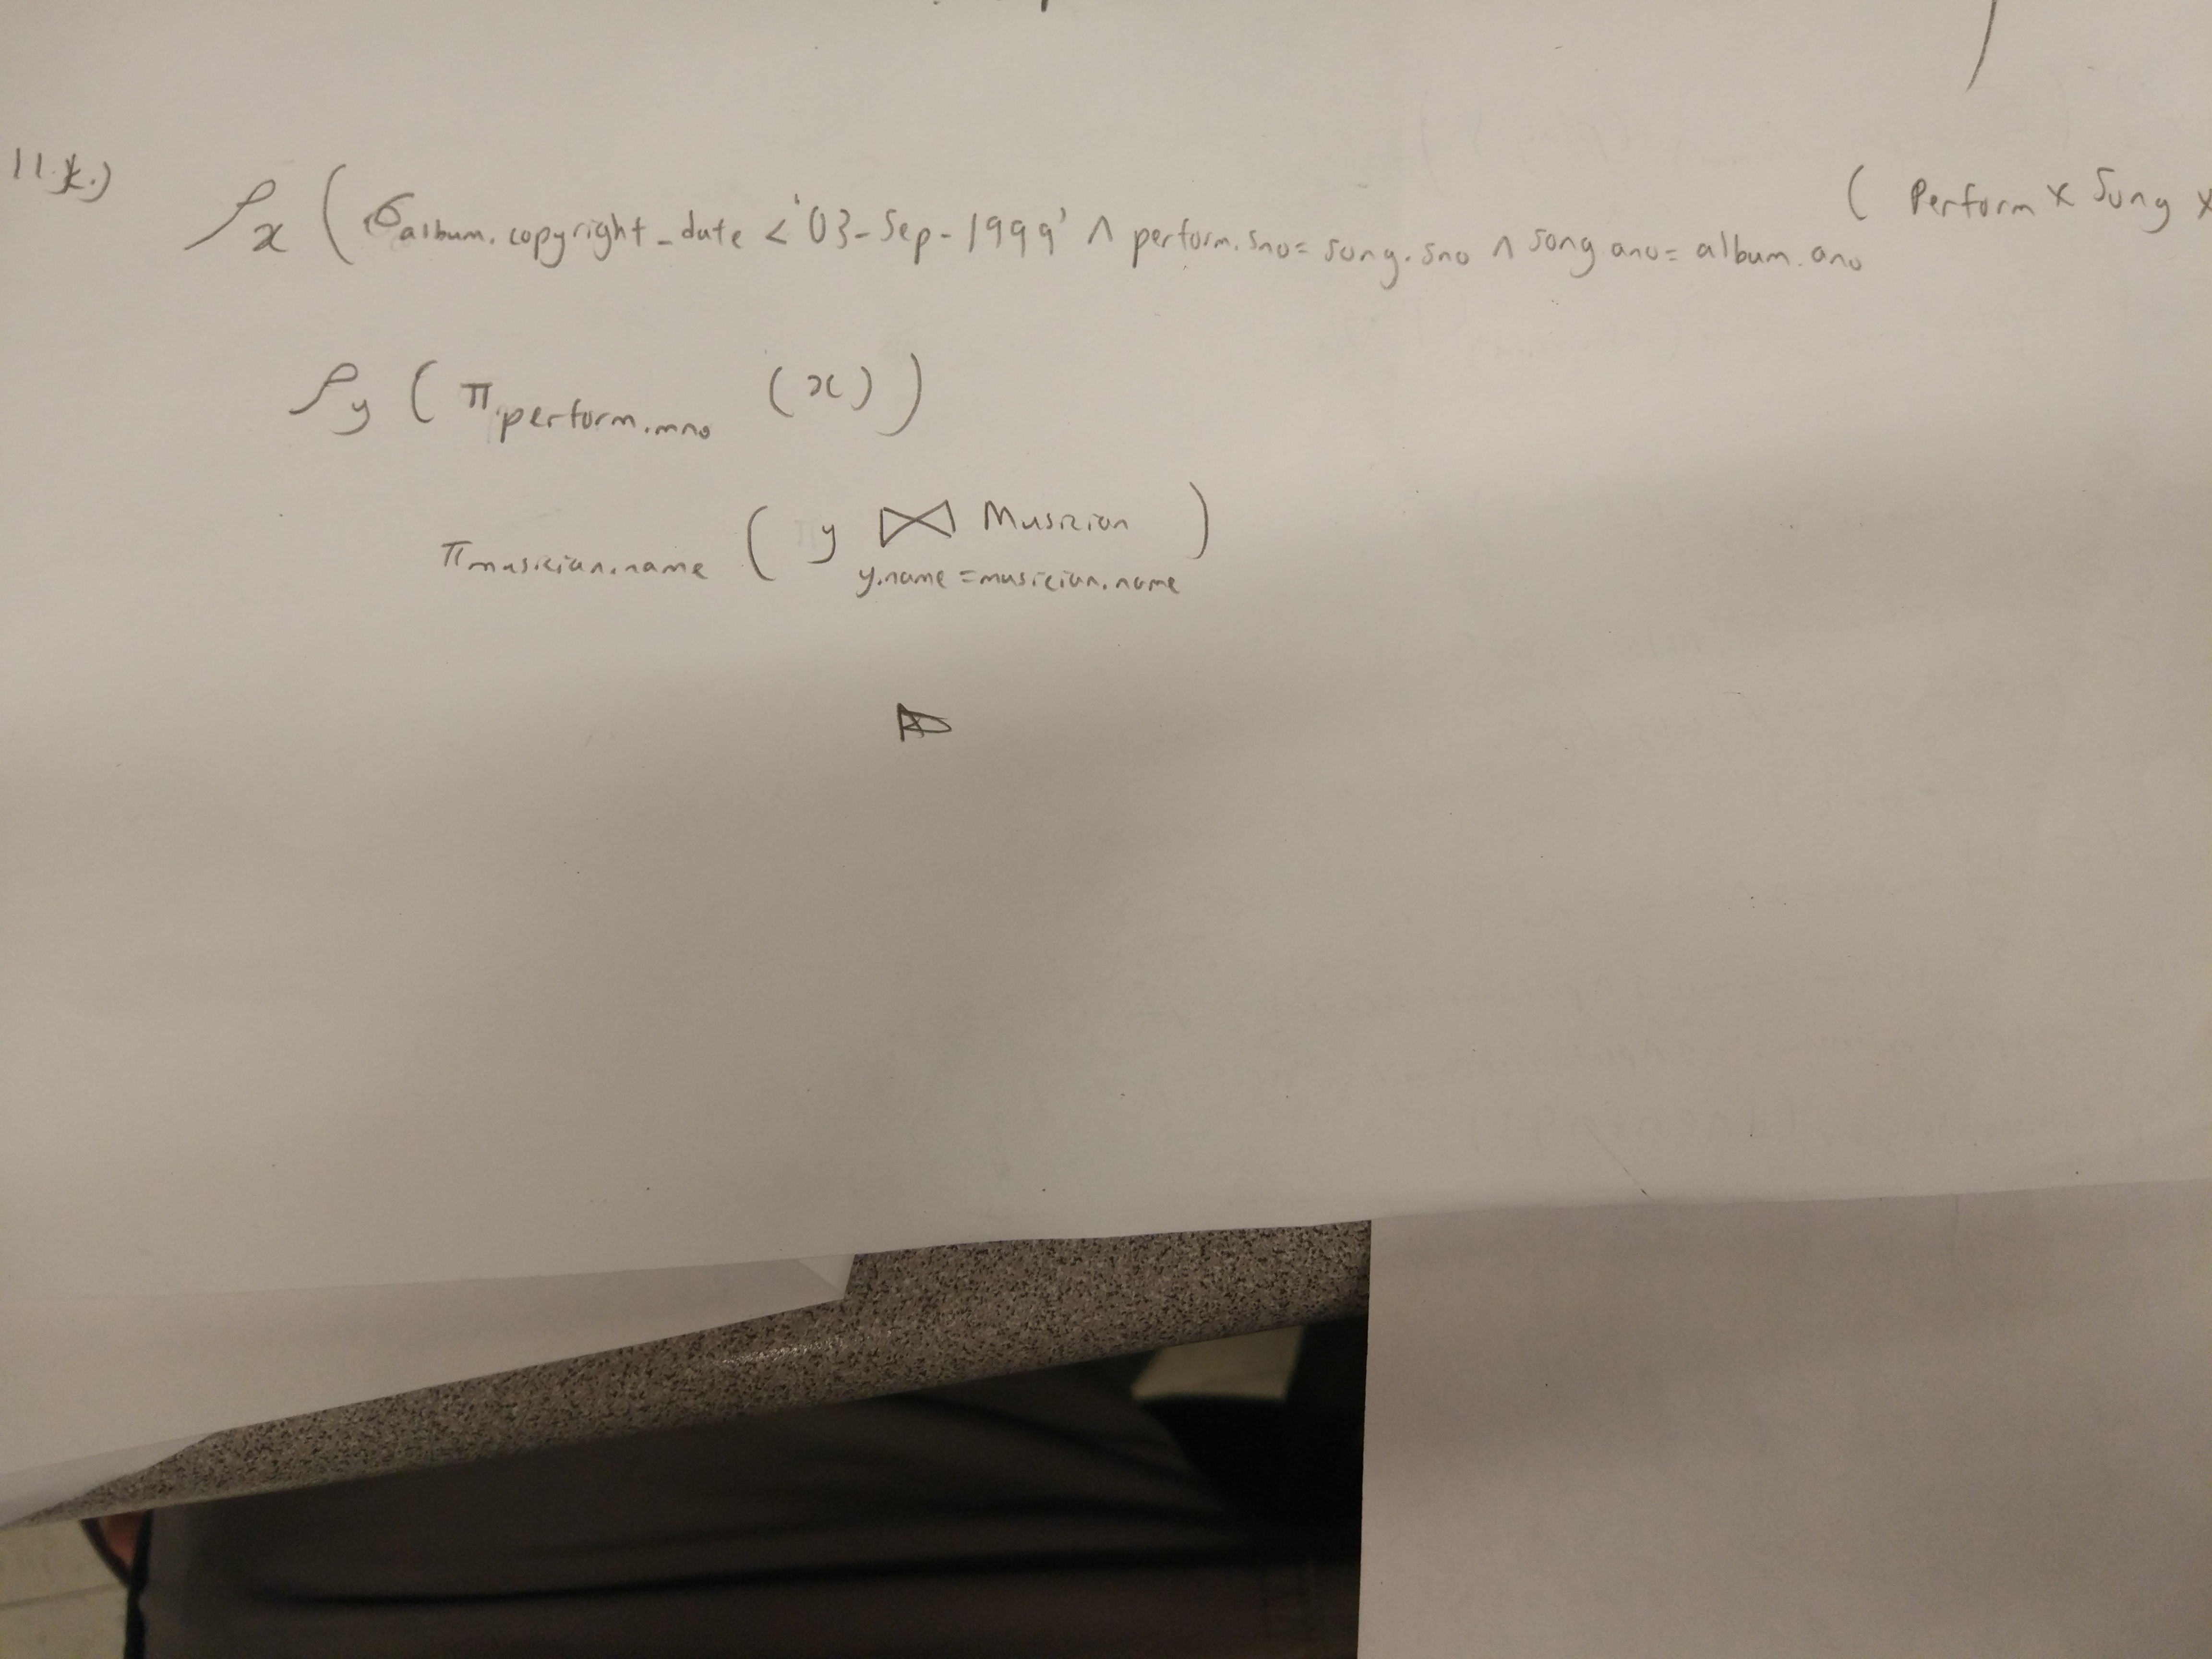 11.k.) ρx ( σalbum.copyright_date < '03-Sep-1999' ∧ perform.sno = song.sno ∧ song.ano = album.ano ( Perform × Song ×
ρy ( π perform.mno (x) )
π musician.name ( y ⋈ y.name = musician.name Musician )